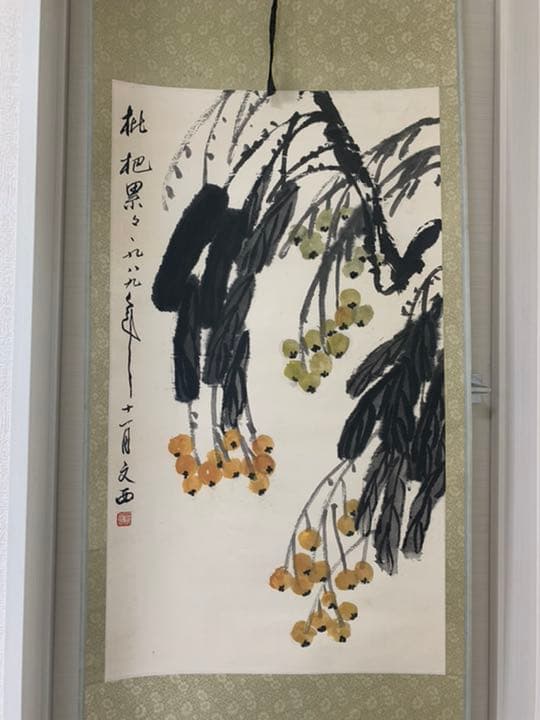 枇杷累々一九八九年十一月文西